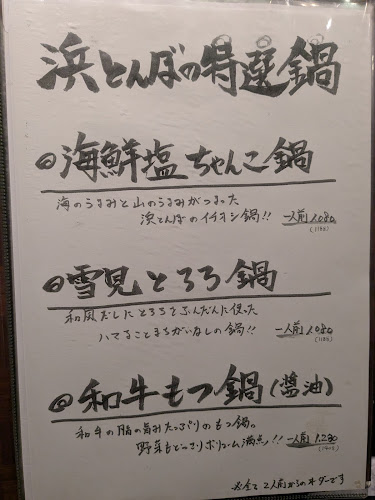 浜とんぼの特選鍋
◎海鮮塩ちゃんこ鍋
海のうまみと山のうまみがつまった
浜とんぼのイチオシ鍋!! 一人前 1.080
(1188)
◎雪見とろろ鍋
和風だしにとろろをふんだんに使った
ハマることまちがいなしの鍋!! 一人前 1.080
(1188)
◎和牛もつ鍋(醬油)
和牛の脂の旨みたっぷりのもつ鍋。
野菜もどっさりボリューム満点!! 一人前 1.280
(1408)
※全て2人前からのオーダーです